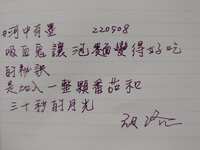 #河中有墨 220508
吸血鬼讓泡麵變得好吃
的秘訣
是加入一整顆番茄和
三十秒的月光